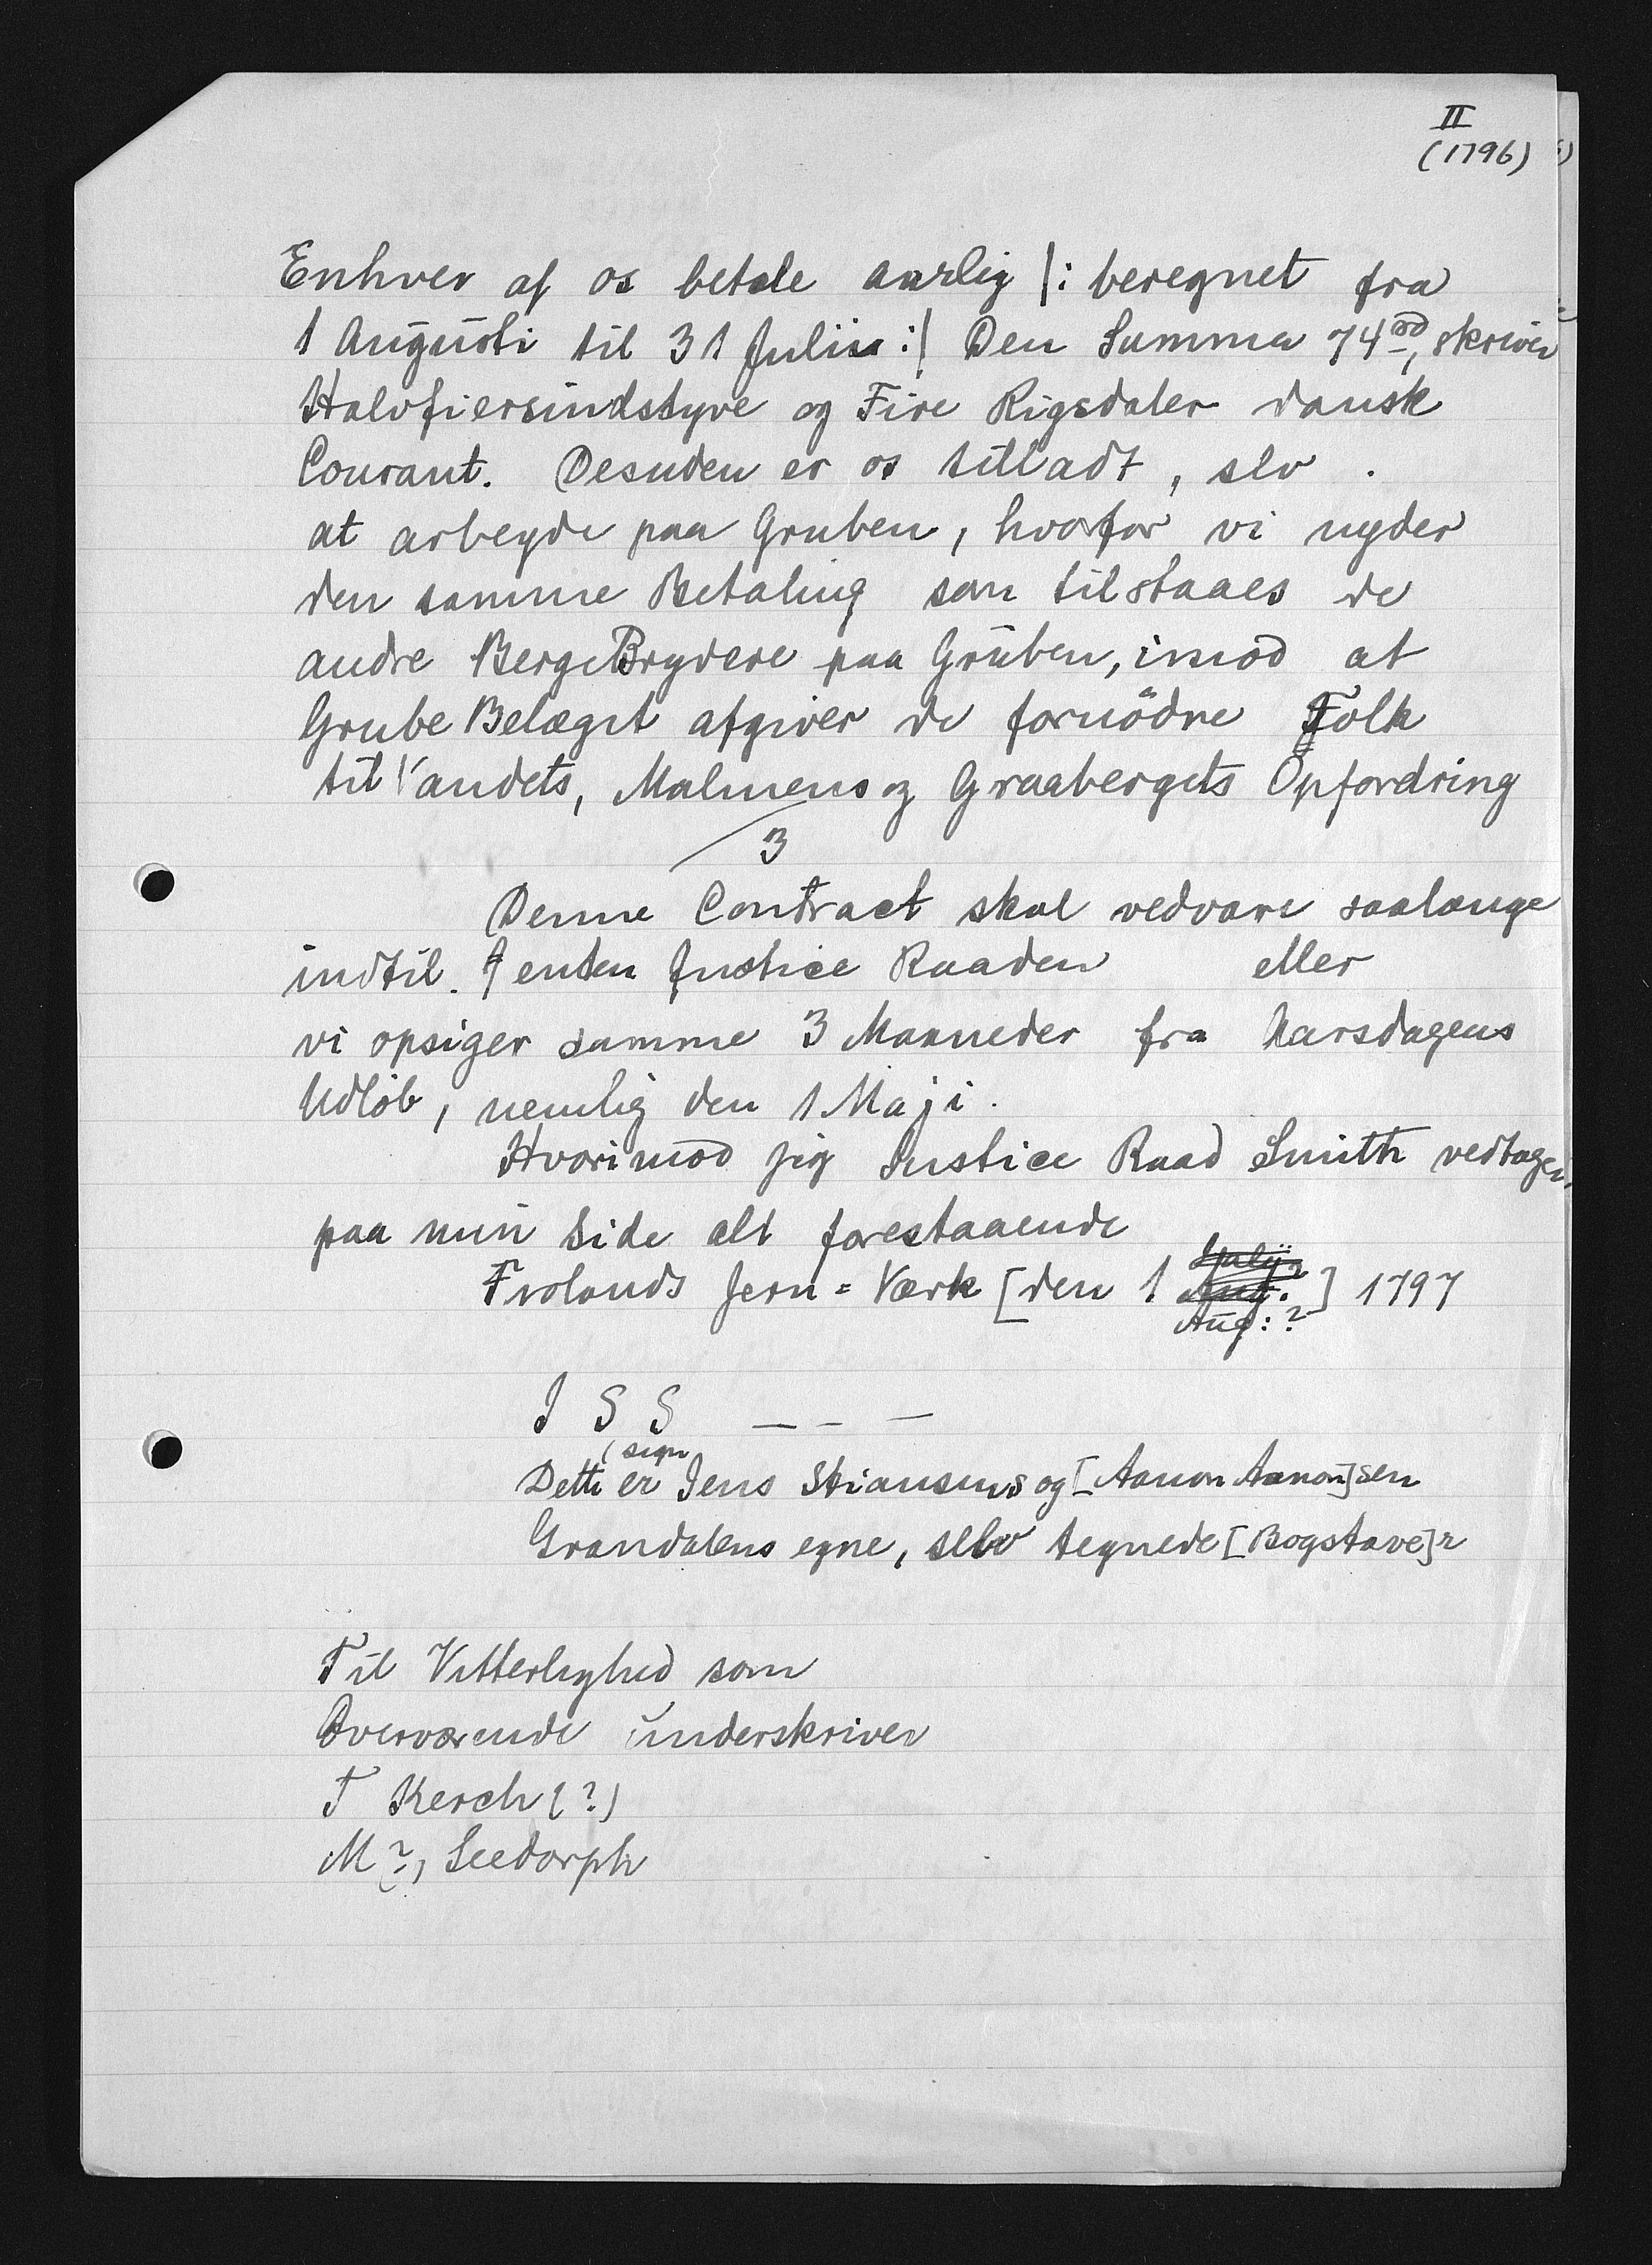 II
(1796)
Enhver af os betale aarlig |: beregnet fra
1 Augusti til 31 Julii :| Den Summa 74 rd, skriver
Halvfiersindstyve og Fire Rigsdaler dansk
Courant. Desuden er os tilladt, slv .
at arbeyde paa Gruben, hvorfor vi nyder
den samme Betaling som tilstaaes de
andre BergeBrydere paa Gruben, imod at
Grube Belæget afgiver de fornödne Folk
til Vandets, Malmens og Graabergets Opfordring
3
Denne Contract skal vedvare saalænge
indtil enten Justice Raaden eller
vi opsiger samme 3 Maaneder fra Aarsdagens
Udløb, nemlig den 1 Maji.
Hvorimod jeg Justice Raad Smith vedtager
paa min Side alt forestaaende
Frolands Jern = Værk [den 1 Aug: ?] 1797
I S S — - —
(sign
Dette er Jens Stiansens og [Aanon Aanon]sen
Grandalens egne, selv tegnede [Bogstave]r
Til Vitterlighed som
Overværende underskriver
T Kerch (?)
M ?, Seedorph